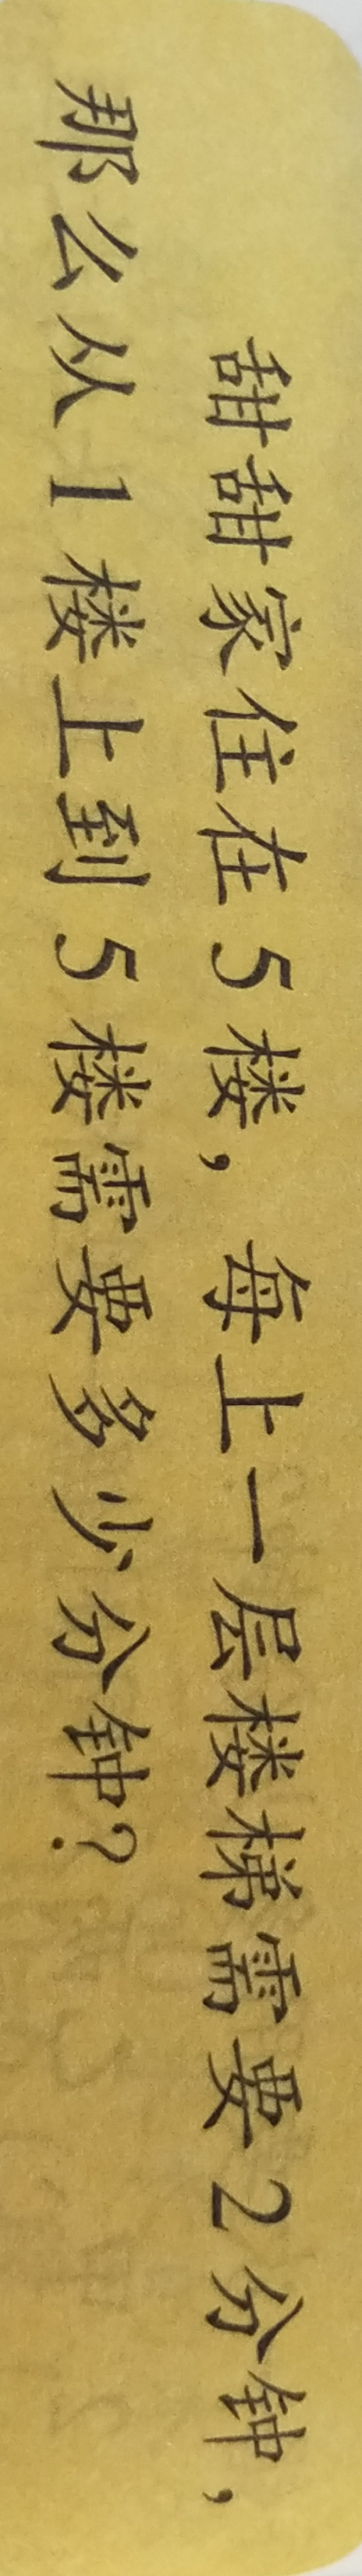 甜甜家住在5楼，每上一层楼梯需要2分钟，
那么从1楼上到5楼需要多少分钟？